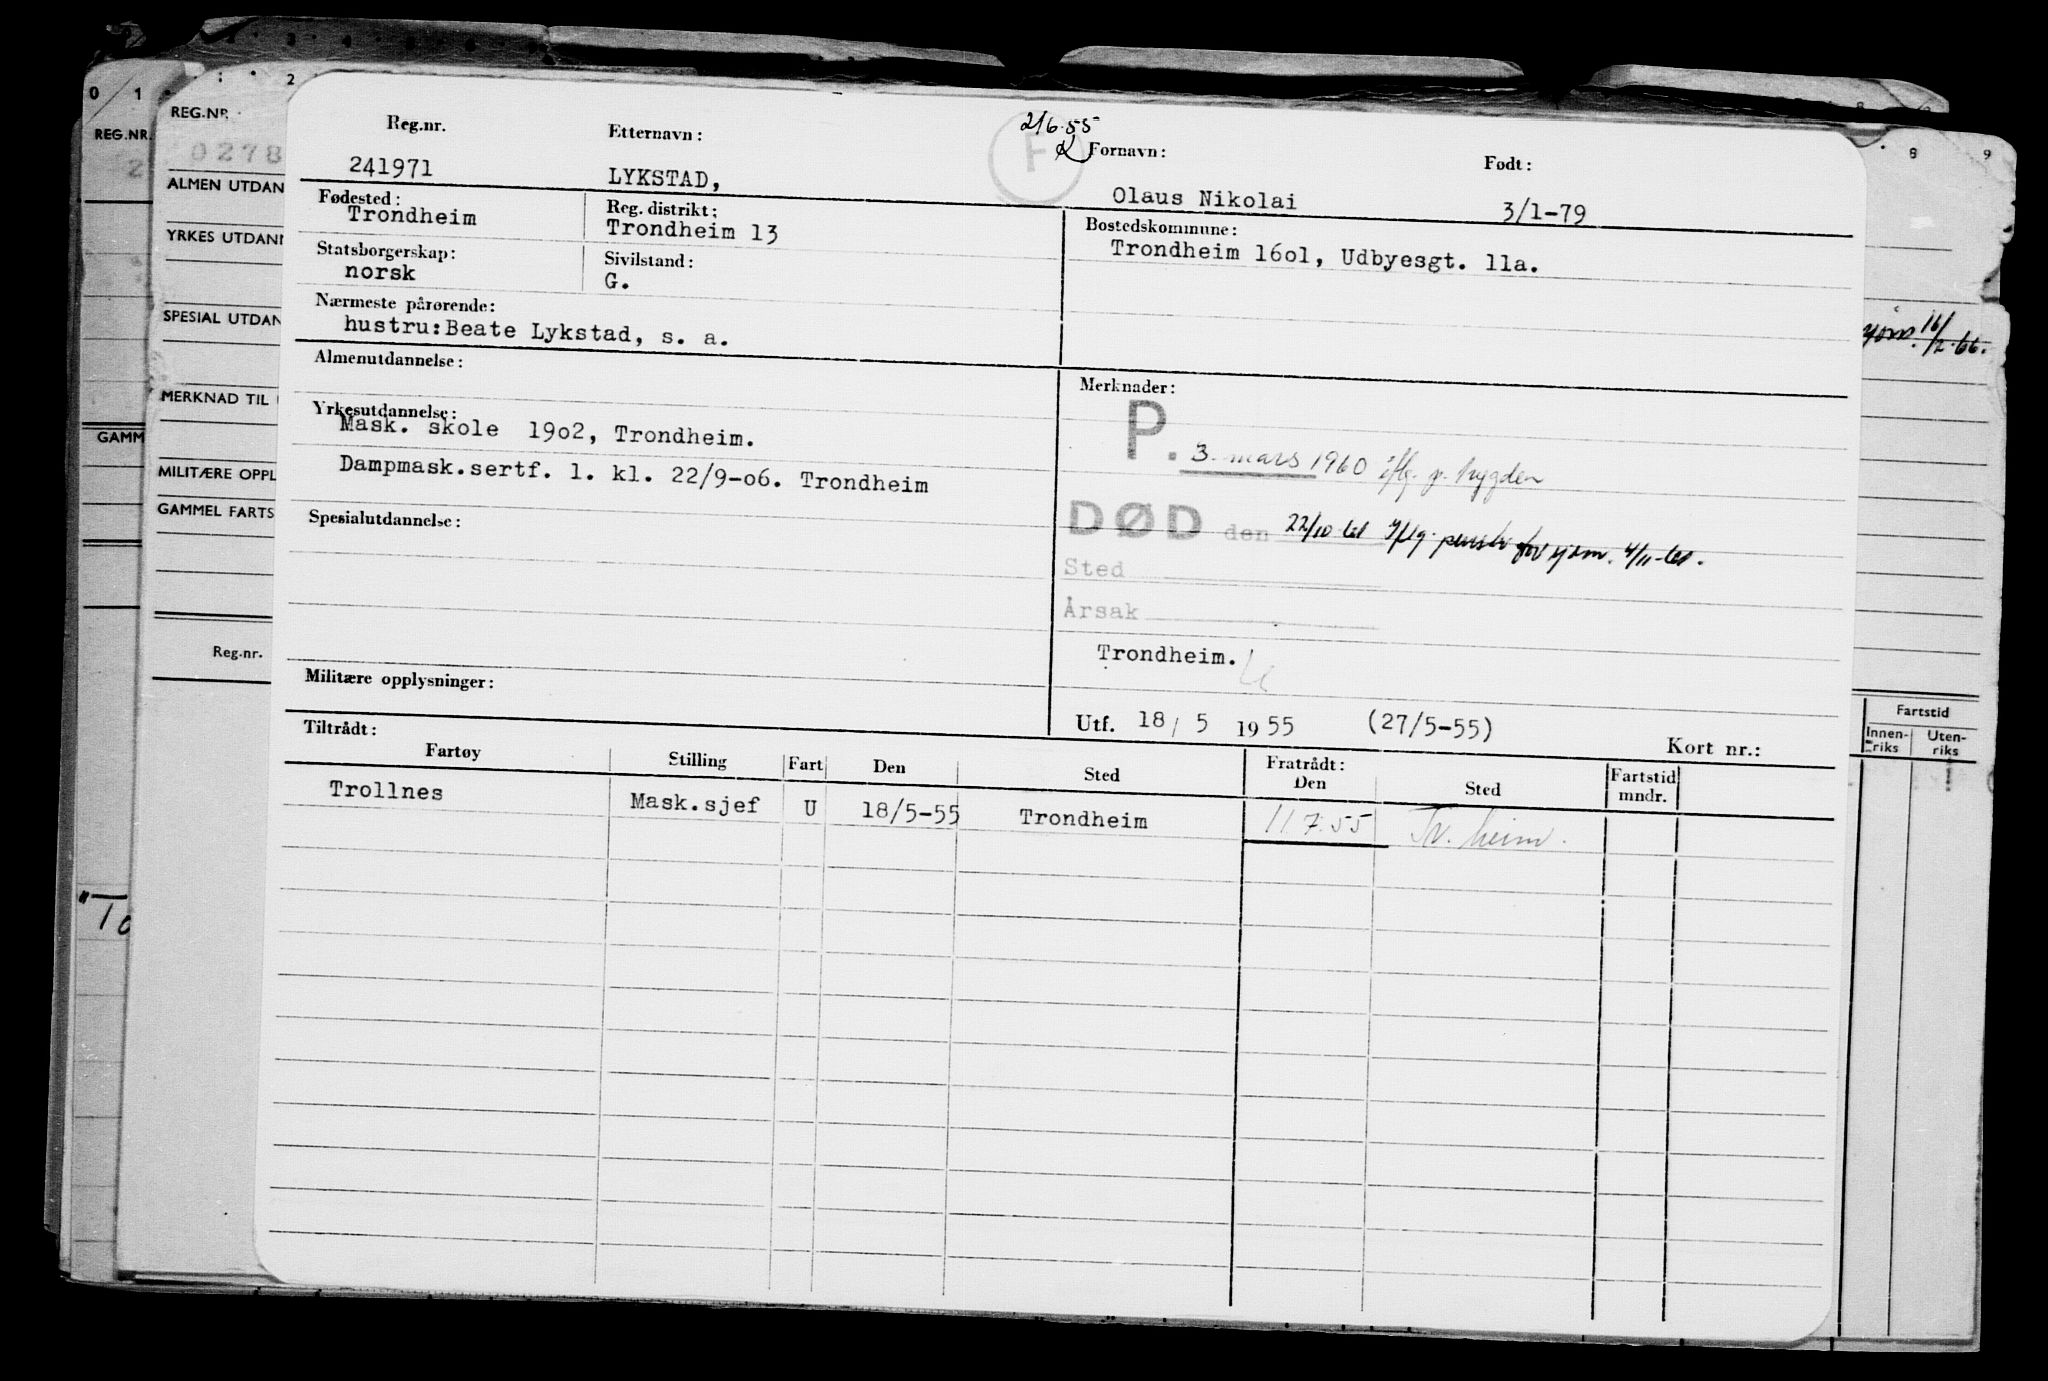 0 1 2
REG.NR.
REG.NR.
0278
ALMEN UTDAN
YRKES UTDANN
SPESIAL UTDAN
MERKNAD TIL
GAMM
MILITÆRE OPPL
GAMMEL FARTS
Reg.nr.
"To
8 9
16/2-66.
Fartstid
Innen-riks Uten-riks
21/6-55
F
Reg.nr. Etternavn: Fornavn: Født:
241971 LYKSTAD, Olaus Nikolai 3/1-79
Fødested: Reg. distrikt: Bostedskommune:
Trondheim Trondheim 13 Trondheim 16o1, Udbyesgt. 11a.
Statsborgerskap: Sivilstand:
norsk G.
Nærmeste pårørende:
hustru:Beate Lykstad, s. a.
Almenutdannelse: Merknader:
Yrkesutdannelse:
Mask. skole 19o2, Trondheim.
Dampmask.sertf. 1. kl. 22/9-o6. Trondheim
P. 3. mars 1960 iflg. p. trygden
Spesialutdannelse:
DØD den 22/10-61 iflg. pensj. for sjøm. 4/11-61.
Sted
Årsak
Trondheim.
Militære opplysninger:
Utf. 18/ 5 1955 (27/5-55) Kort nr.:
Tiltrådt: Fratrådt:
Fartøy Stilling Fart Den Sted Den Sted Fartstid mndr.
Trollnes Mask.sjef U 18/5-55 Trondheim 11.7.55 Tr.heim.